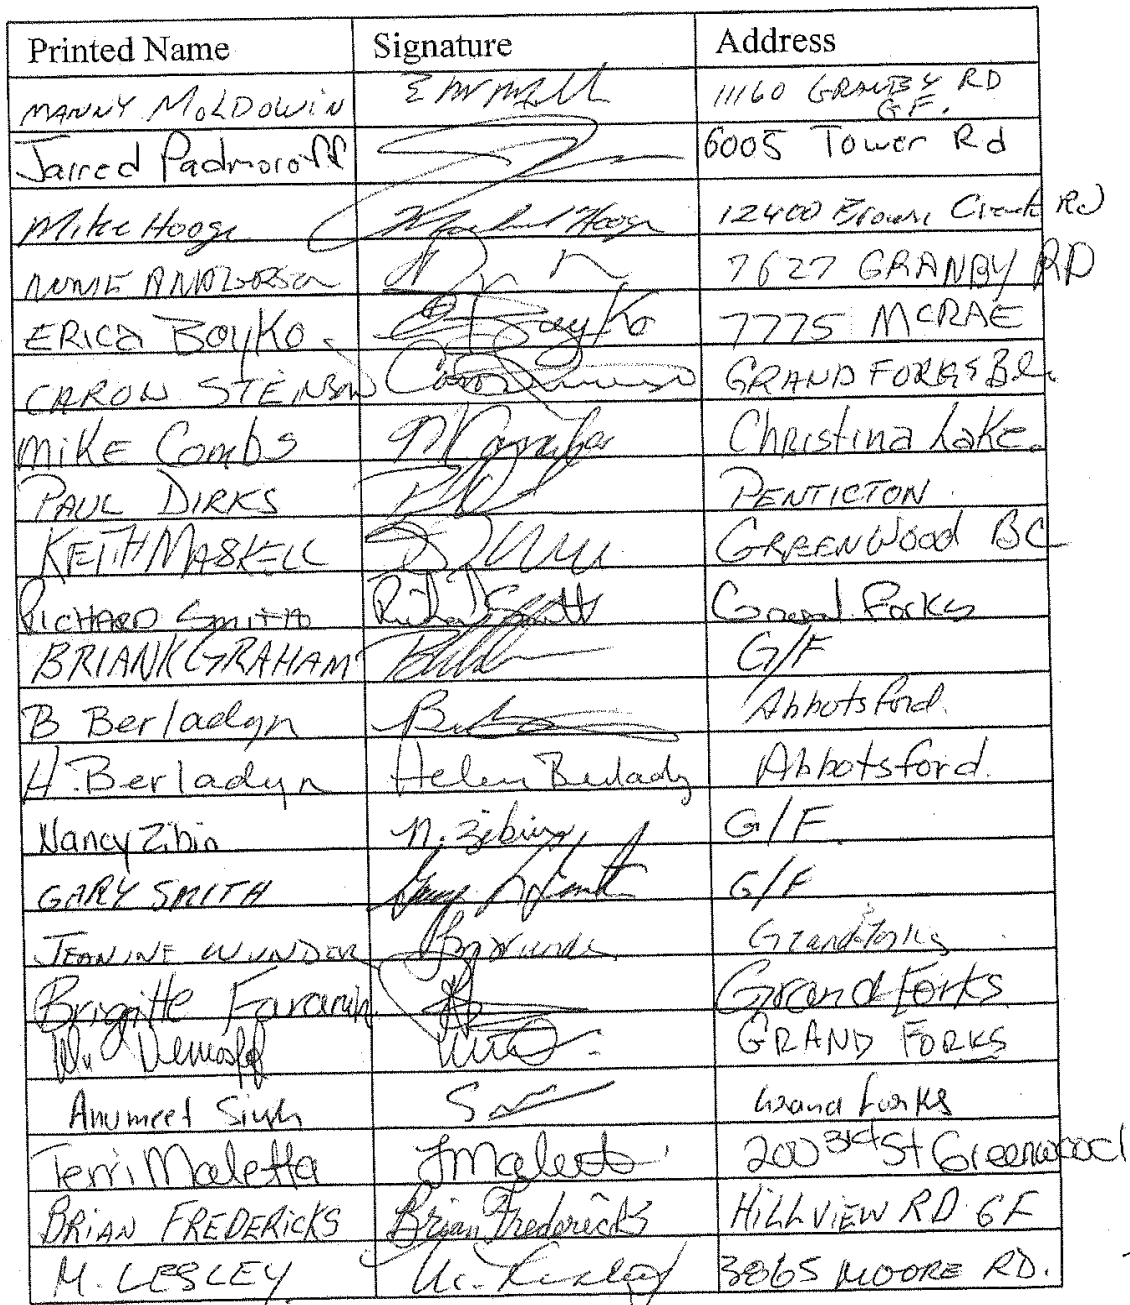 Printed Name Signature Address
MANNY MOLDOWIN 11160 GRANBY RD
G.F.
Jarred Padmoroff 6005 Tower Rd
Mike Hooge Michael Hooge 12400 Brown Creek Rd
ANDERSON 7627 GRANBY RD
ERICA BOYKO E Boyko 7775 MCRAE
CARON STEINSON GRAND FORKS B.C.
MIKE Combs M Combs Christina Lake.
PAUL DIRKS PENTICTON
KEITH MASKELL GREENWOOD BC
RICHARD SMITH Richard Smith Grand Forks
BRIAN K GRAHAM G/F
B Berladyn Abbotsford.
H. Berladyn Helen Berladyn Abbotsford.
Nancy Zibin N. Zibin G/F
GARY SMITH Gary Smith G/F
JEANINE WUNDER Grand Forks
Brigitte Grand Forks
W. Demosoff GRAND FORKS
Anumeet Singh Grand Forks
Terri Maletta TMaletta 200 3rd St Greenwood
BRIAN FREDERICKS Brian Fredericks HILLVIEW RD GF
M. LESLEY M. Lesley 3865 MOORE RD.